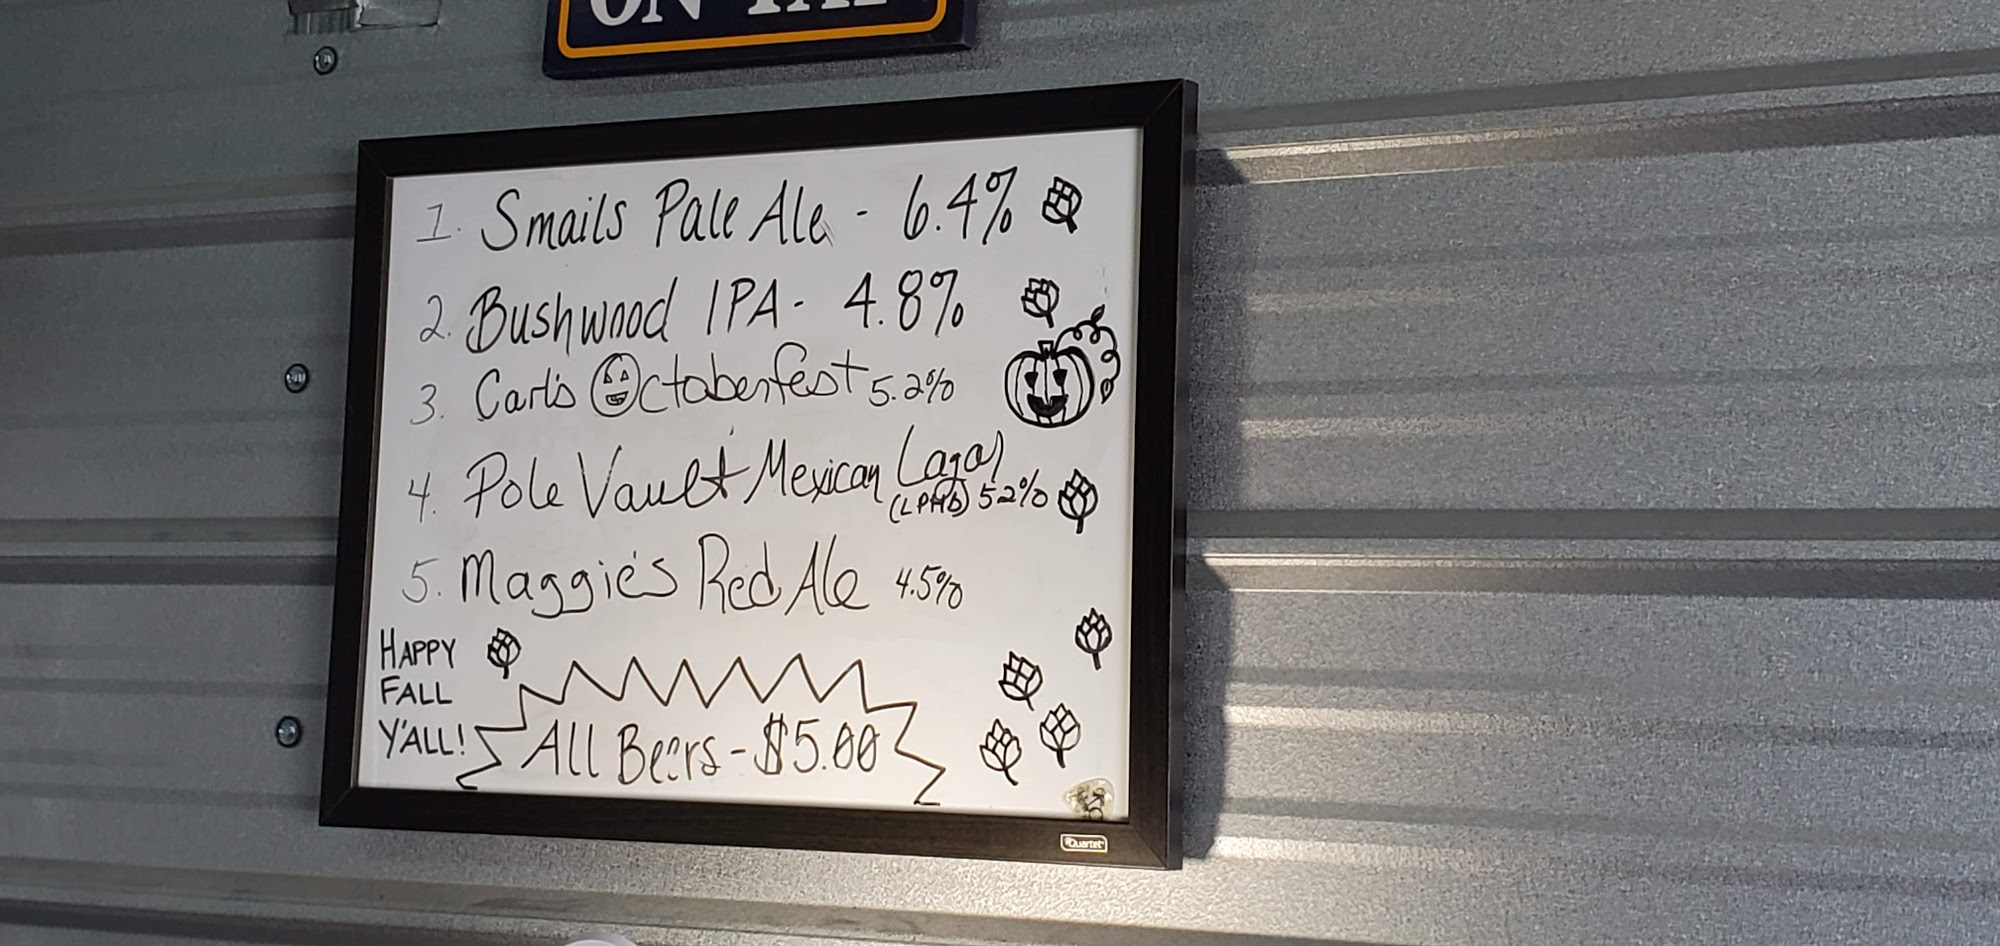 ON TAP
1. Smails Pale Ale - 6.4%
2. Bushwood IPA - 4.8%
3. Carl's Octoberfest 5.2%
4. Pole Vault Mexican Lager
(LPHB) 5.2%
5. Maggie's Red Ale 4.5%
HAPPY
FALL
Y'ALL!
All Beers - $5.00
Quartet